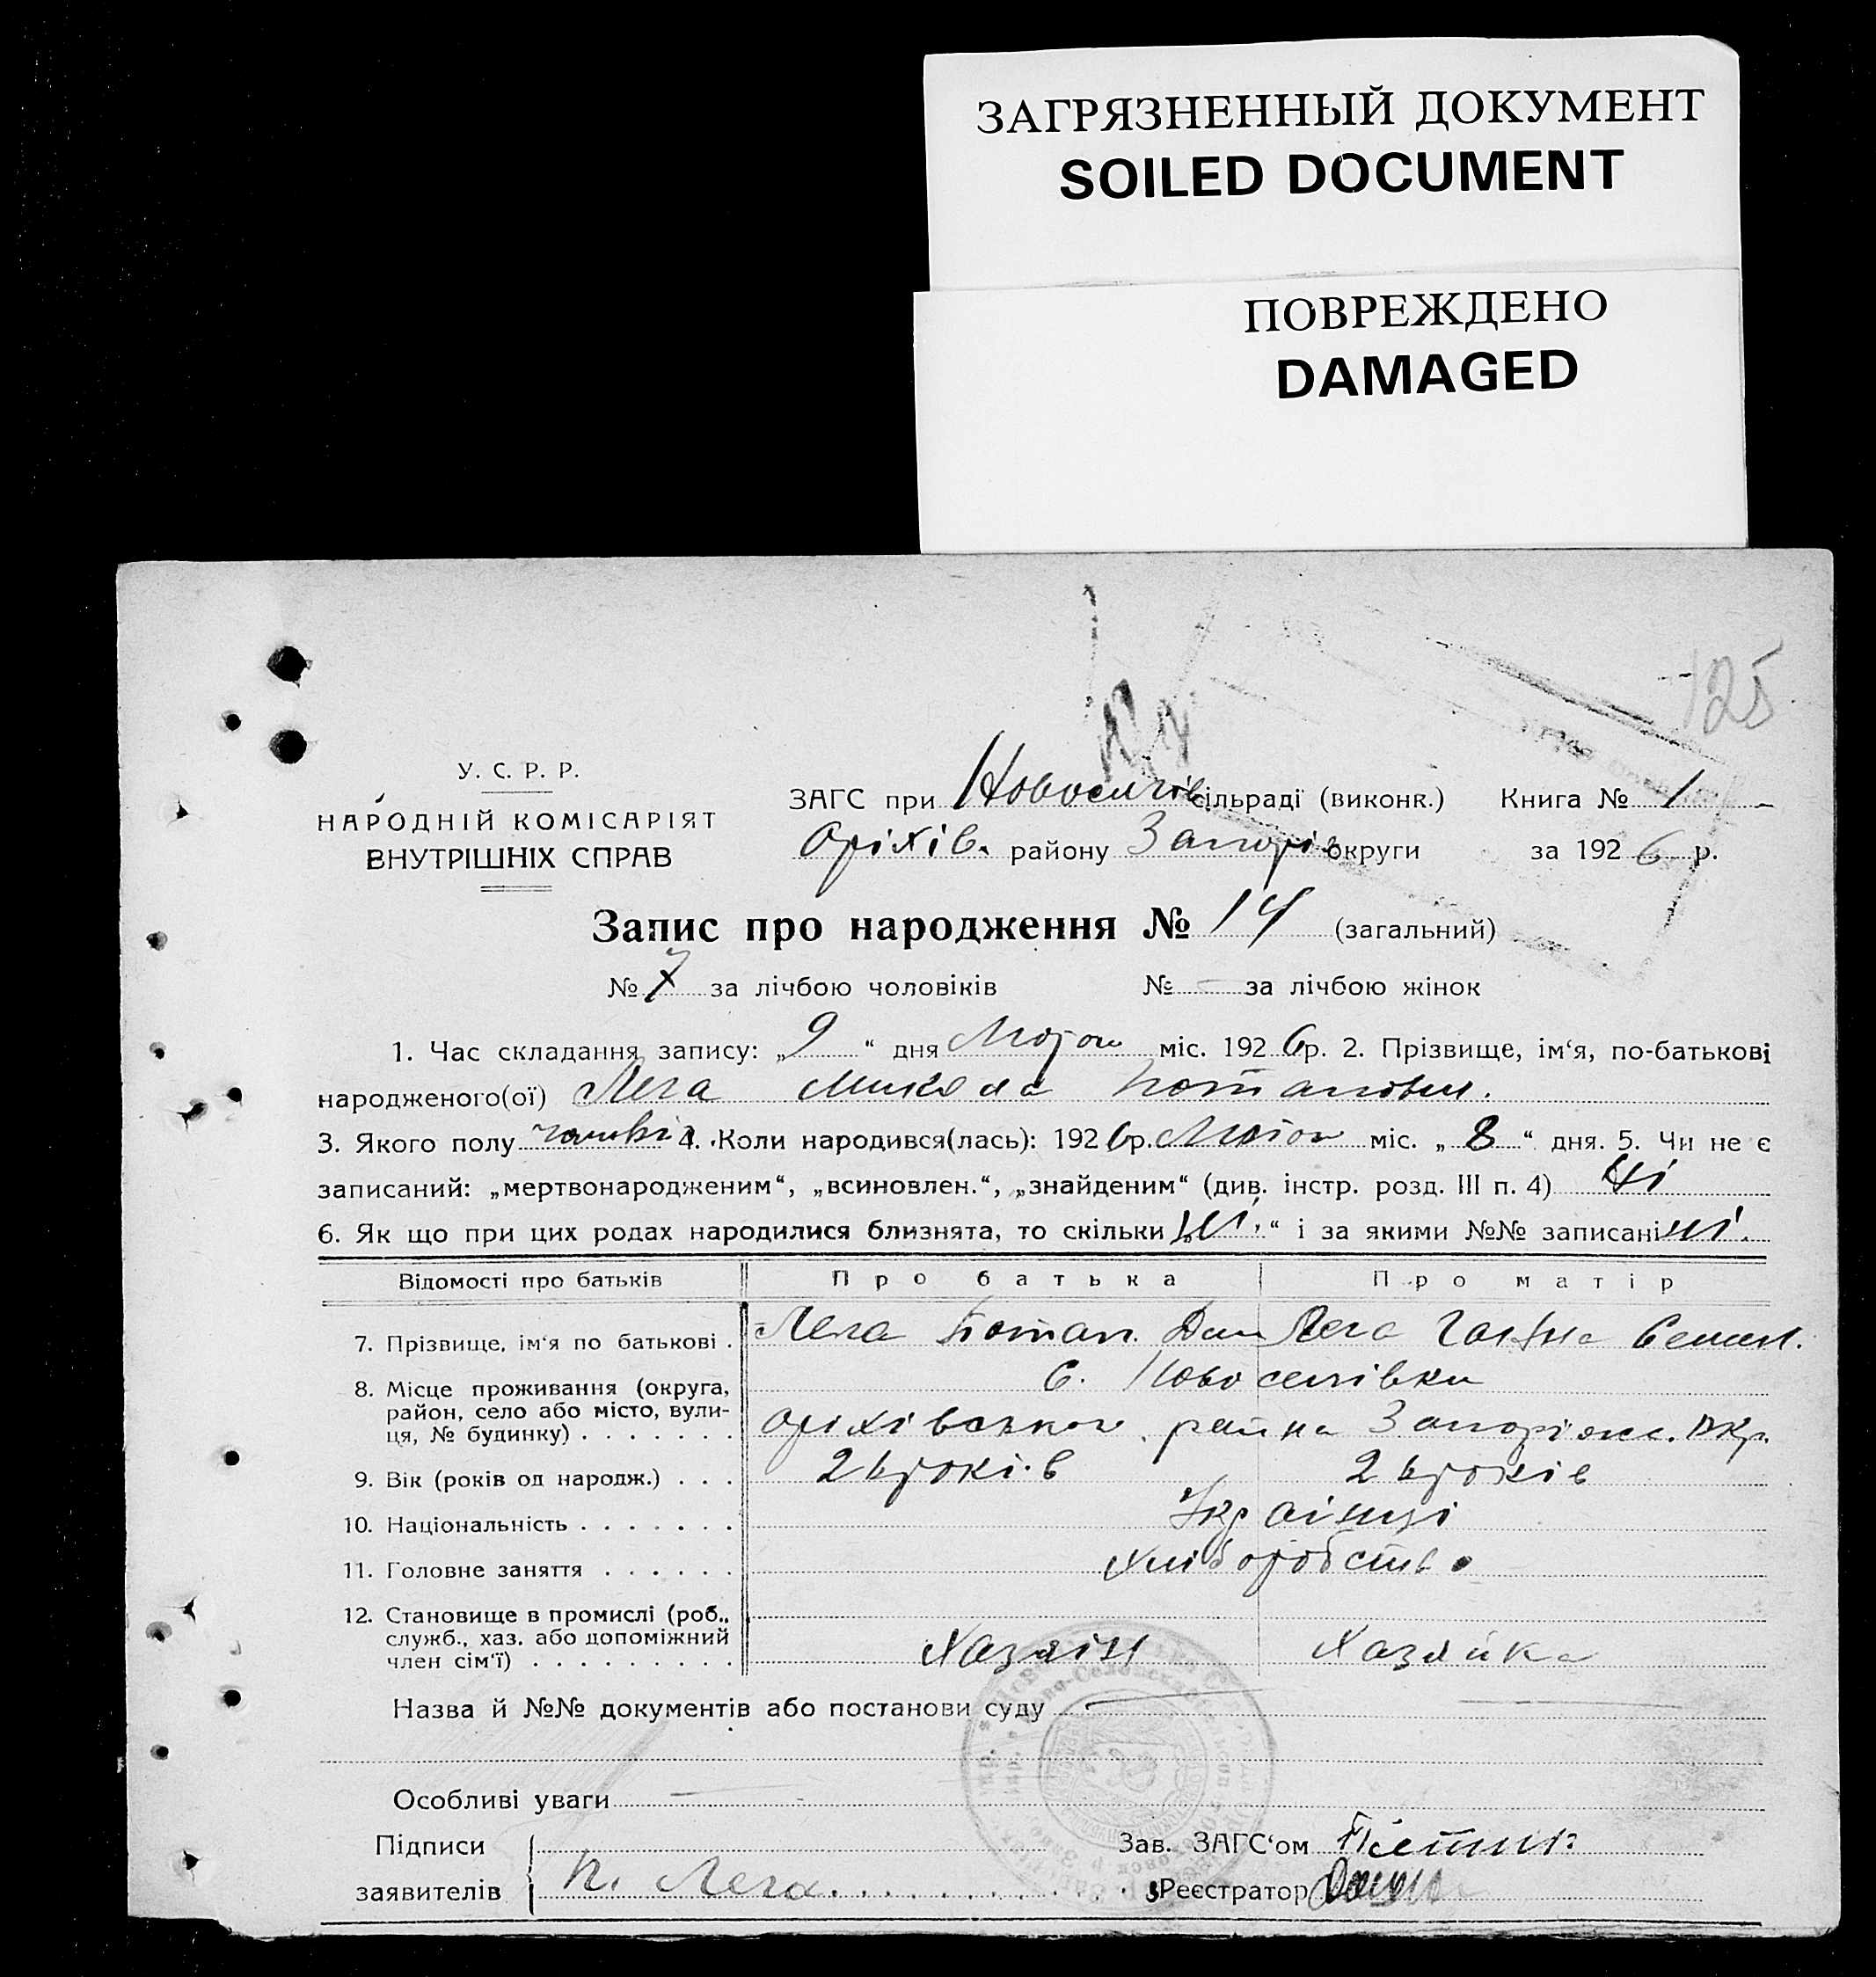 ЗАГРЯЗНЕННЫЙ ДОКУМЕНТ
SOILED DOCUMENT
ПОВРЕЖДЕНО
DAMAGED
125
У. С. Р. Р.
НАРОДНІЙ КОМІСАРІЯТ
ВНУТРІШНІХ СПРАВ
ЗАГС при Новоселів сільраді (виконк.) Книга № 1
Оріхів. району Запоріз округи за 1926 р.
Запис про народження № 14 (загальний)
№ 7 за лічбою чоловіків № – за лічбою жінок
1. Час складання запису: „9“ дня міс. 1926 р. 2. Прізвище, ім‘я, по-батькові
народженого(ої) Лега Микола Потапович.
3. Якого полу чоловік 4. Коли народився(лась): 1926 р. міс. „8“ дня. 5. Чи не є
записаний: „мертвонародженим“, „всиновлен.“, „знайденим“ (див. інстр. розд. III п. 4) ні
6. Як що при цих родах народилися близнята, то скільки ні.“ і за якими №№ записані ні.
Відомості про батьків Про батька Про матір
7. Прізвище, ім‘я по батькові . Лега Потап. Дан Лега Ганна Семен.
8. Місце проживання (округа, с. Новоселівки
район, село або місто, вули-
ця, № будинку) . . . . . . . Оріхівського района Запоріжс. Окр.
9. Вік (років од народж.) . . . 26 років 26 років
10. Національність . . . . . . . Українці
11. Головне заняття . . . . . . Хліборобство
12. Становище в промислі (роб.,
служб., хаз. або допоміжний
член сім‘ї) . . . . . . . . . Хазяін Хазяйка
Назва й №№ документів або постанови суду
Особливі уваги
Підписи Зав. ЗАГС‘ом
заявителів П. Лега Реєстратор